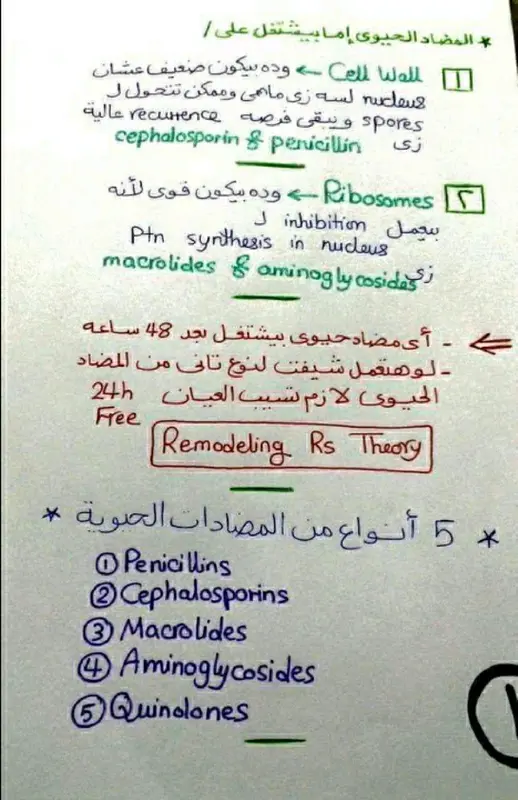 * المضاد الحيوى إما بيشتغل على /
1 Cell Wall ← وده بيكون ضعيف عشان
nucleus لسه زى ماهى وممكن تتحول ل
spores ويبقى فرصه recurrence عالية
زى cephalosporin & penicillin
٢ Ribosomes ← وده بيكون قوى لأنه
بيعمل inhibition ل
Ptn synthesis in nucleus
زى macrolides & aminoglycosides
⇐ - أى مضاد حيوى بيشتغل بعد 48 ساعه
- لو هتعمل شيفت لنوع تانى من المضاد
الحيوى لازم تسيب العيان 24h
Free
Remodeling Rs Theory
* 5 أنواع من المضادات الحيوية *
① Penicillins
② Cephalosporins
③ Macrolides
④ Aminoglycosides
⑤ Quinolones